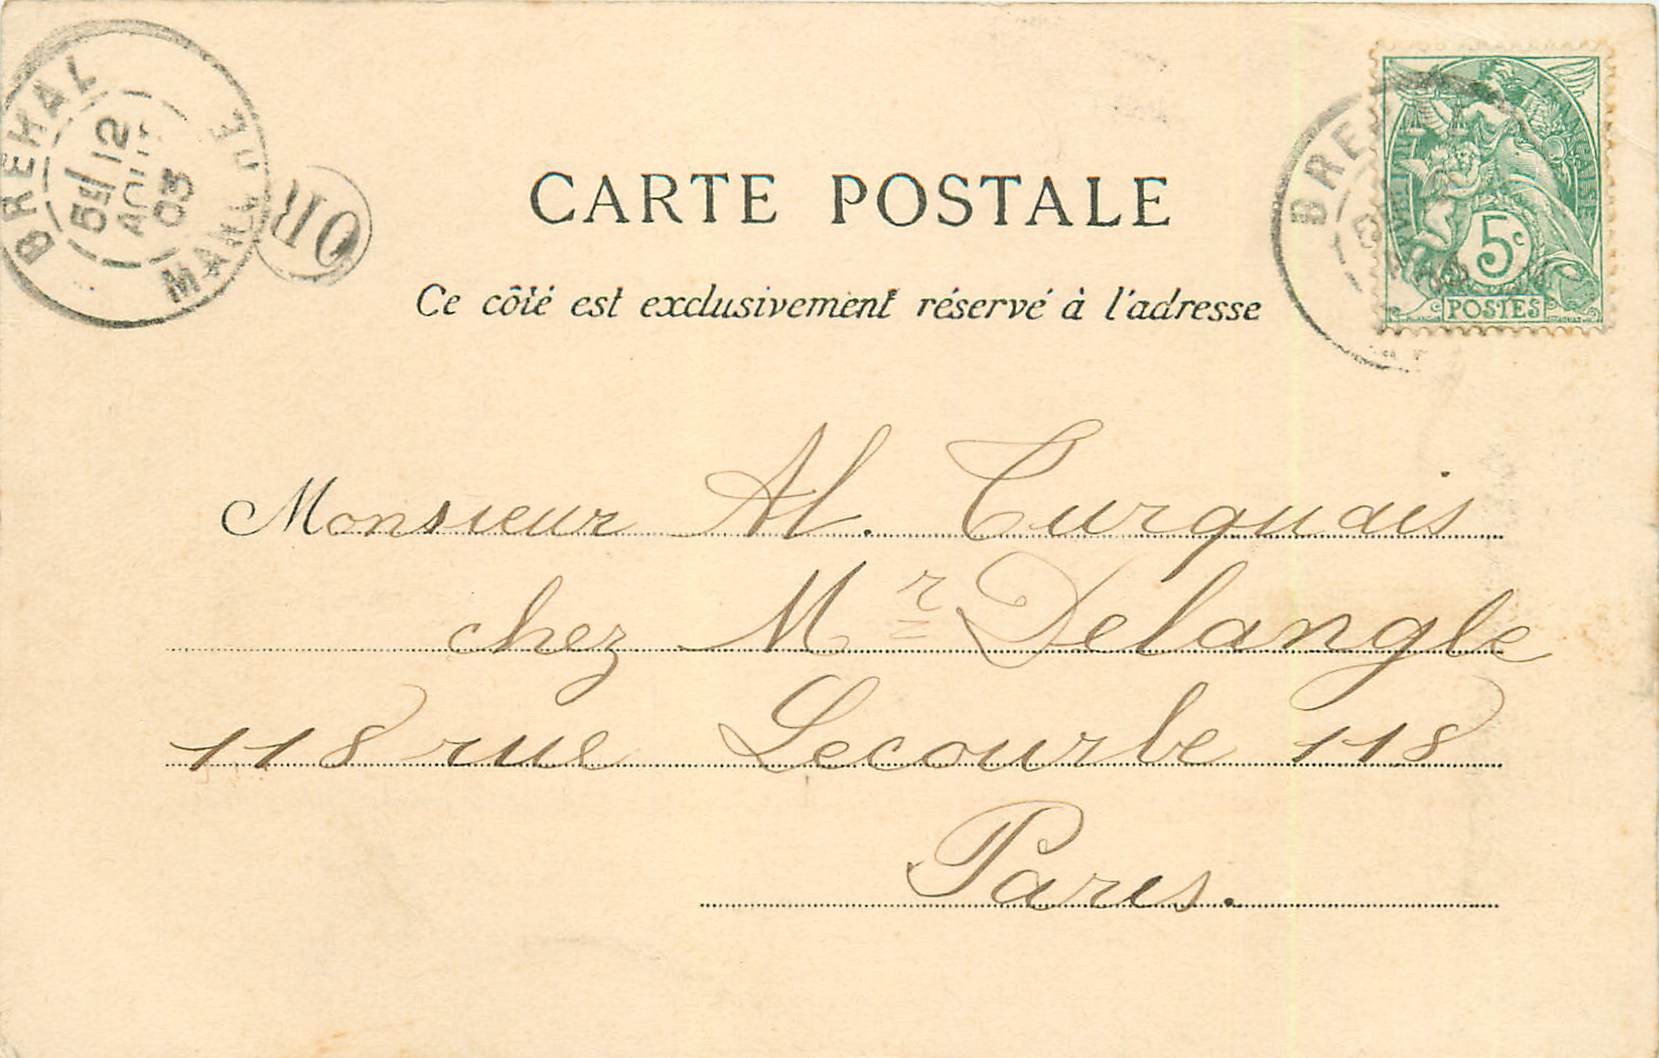 BREHAL
5E 12
AOUT
03
MANCHE
OR
CARTE POSTALE
Ce côté est exclusivement réservé à l'adresse
5c
POSTES
Monsieur Al. Turquais
chez Mr Delangle
118 rue Lecourbe 118
Paris.